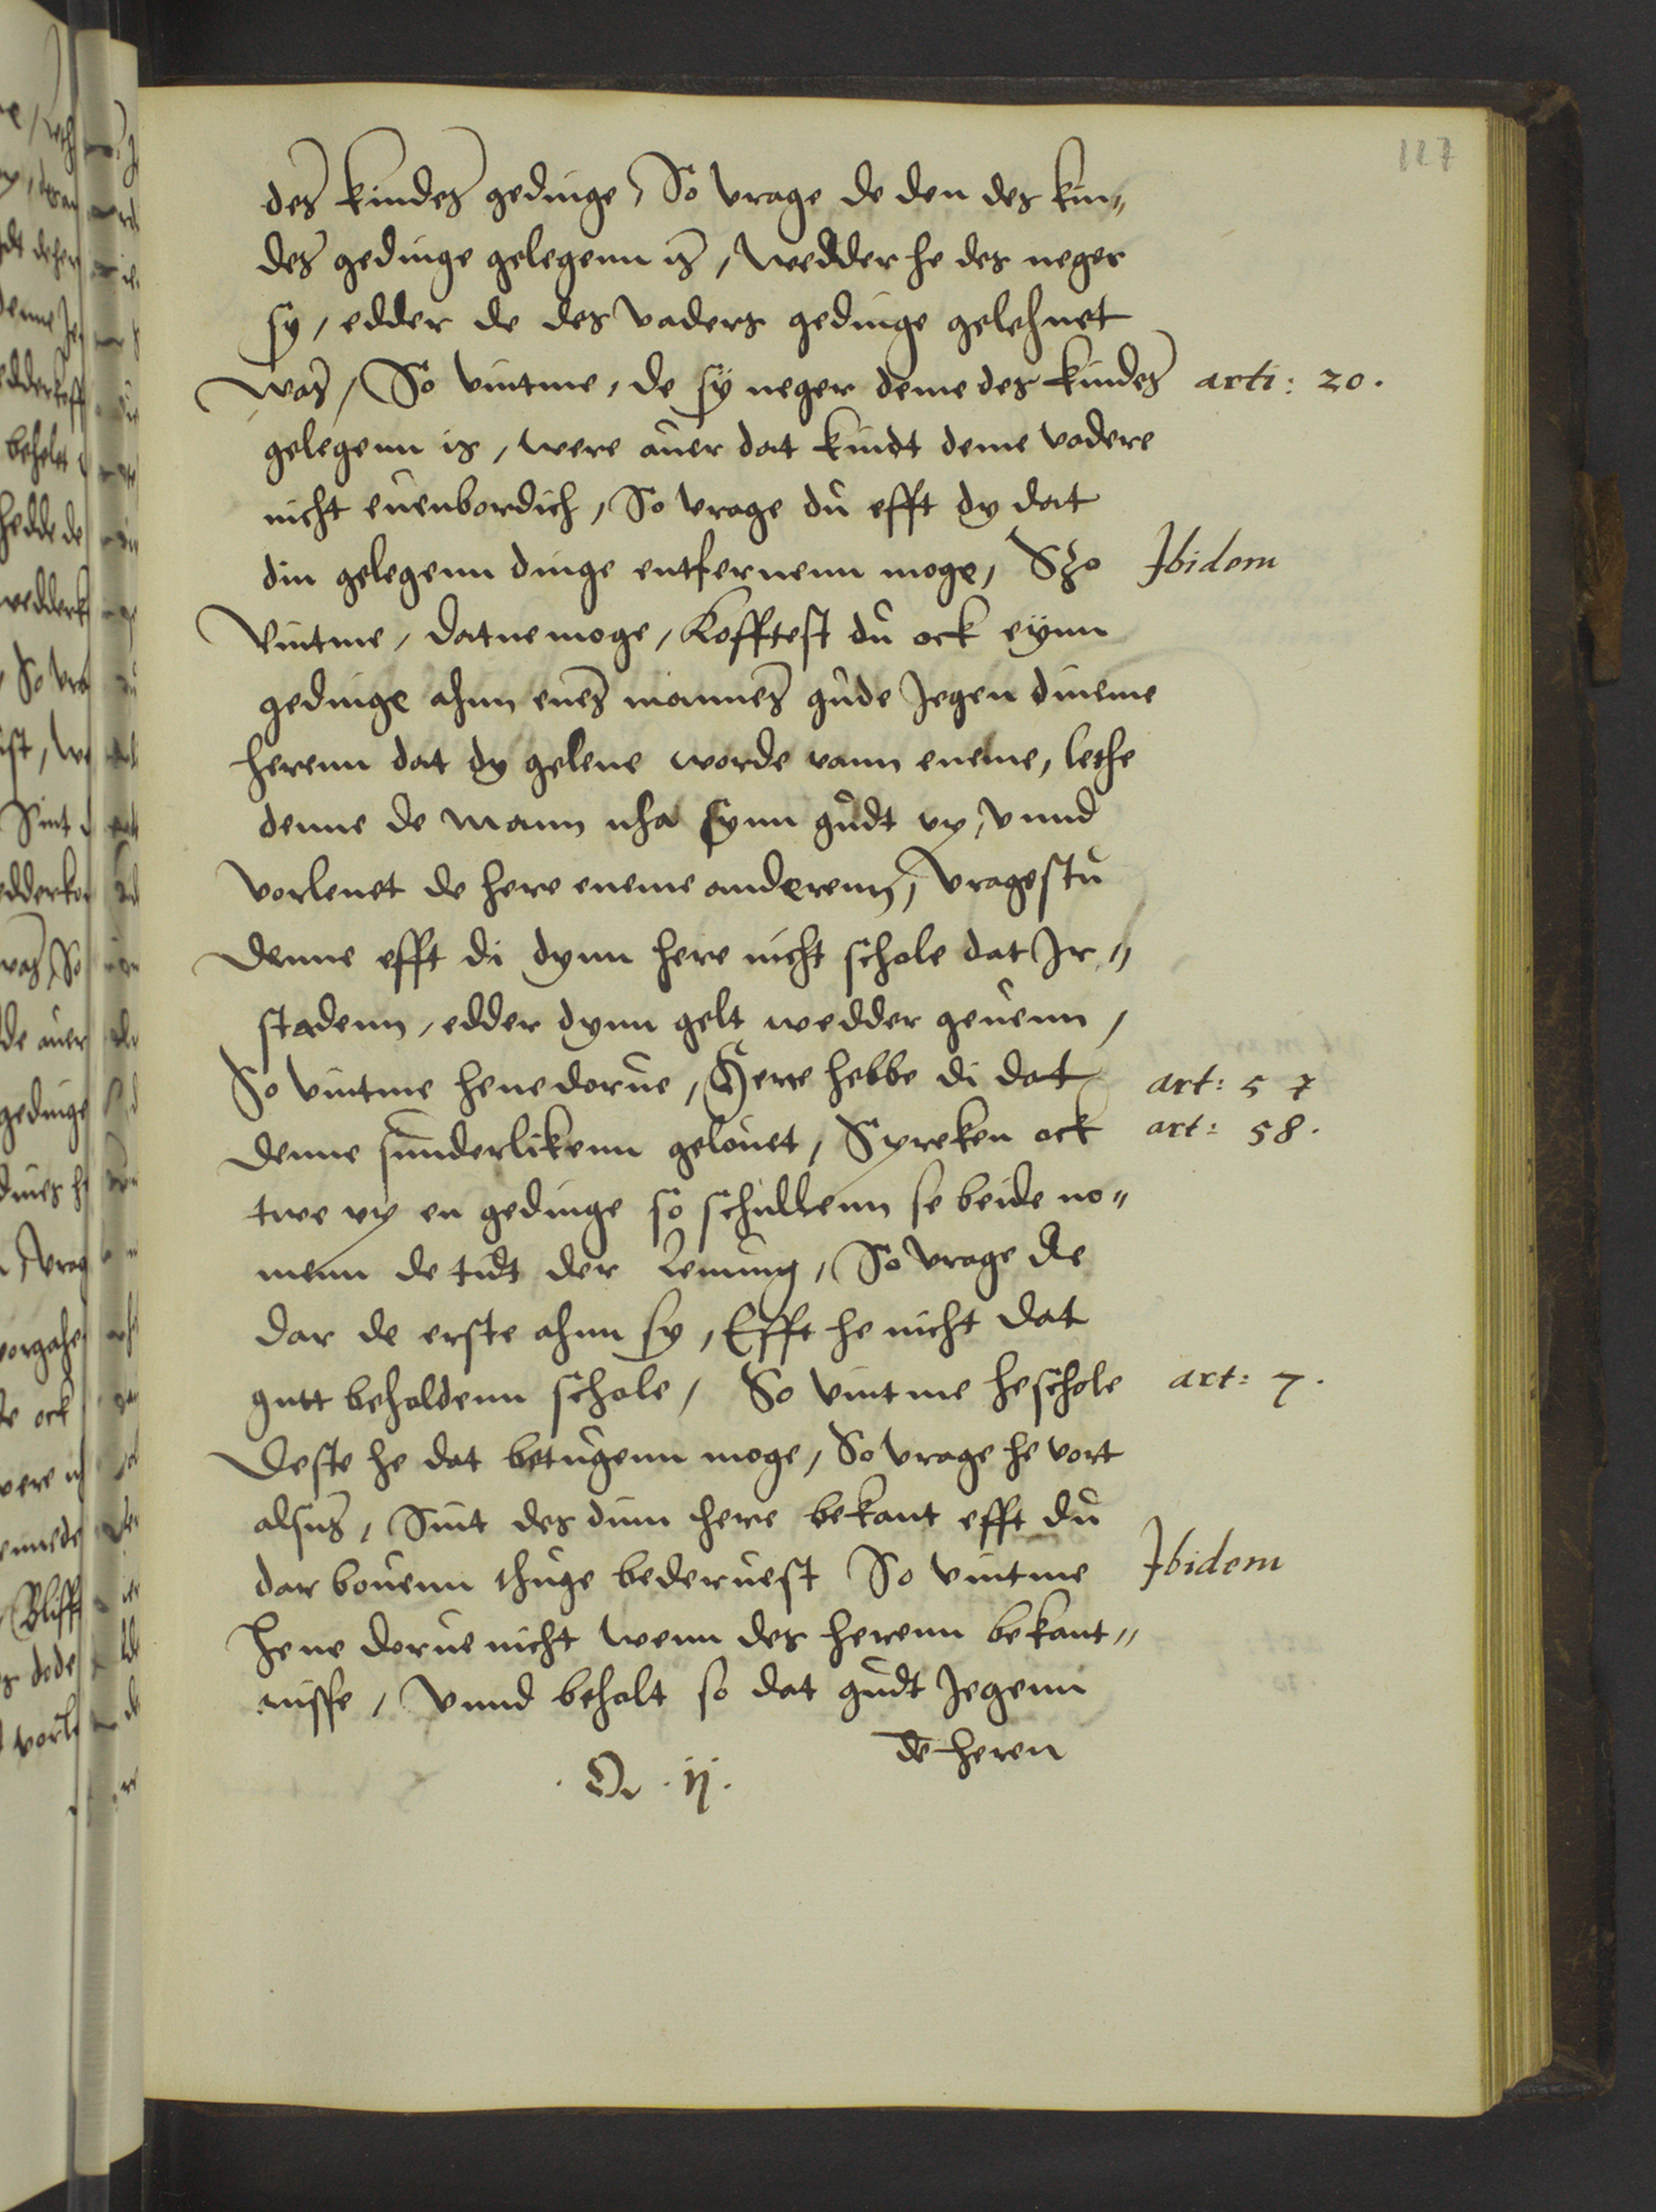 127
des kindes gedinge, So vrage de den des kin„
des gedinge gelegenn is, wedder he des neger
sy, edder de des vaders gedinge gelehnet
was, So vintme, de sÿ neger deme des kindes arti: 20.
gelegenn is, were auer dat kindt deme vadere
nicht euenbordich, So vrage du efft dy dat
din gelegenn dinge entfernenn moge, Szo Ibidem
vintme, datnemoge, Kofftest du ock eÿnn
gedinge ahnn enes mannes gude Jegen dineme
herenn dat dy gelene worde vann eneme, lethe
denne de mann nha synn gudt vp, vnnd
vorlenet de here eneme anderenn, vragestu
denne efft di dynn here nicht schole dat Jr„
stadenn, edder dynn gelt wedder geuenn,
So vintme hene dorue, Here hebbe di dat art: 57
denne sunderlikenn gelouet, Spreken ock art: 58.
twe vp en gedinge so schullenn se beide no„
menn de tidt der Lenung, So vrage de
dar de erste ahnn sy, Efft he nicht dat
gutt beholdenn schole, So vintme heschole art: 7.
deste he dat betugenn moge, So vrage he vort
alsus, Sint des dinn here bekant efft du
dar bouenn thuge bederuest So vintme Ibidem
Hene dorue nicht wenn des herenn bekant„
nisse, vnnd beholt so dat gudt Jegenn
de heren
. Q . ij .